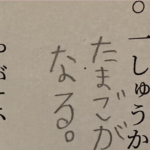 。一しゅうか
たまごが
なる。